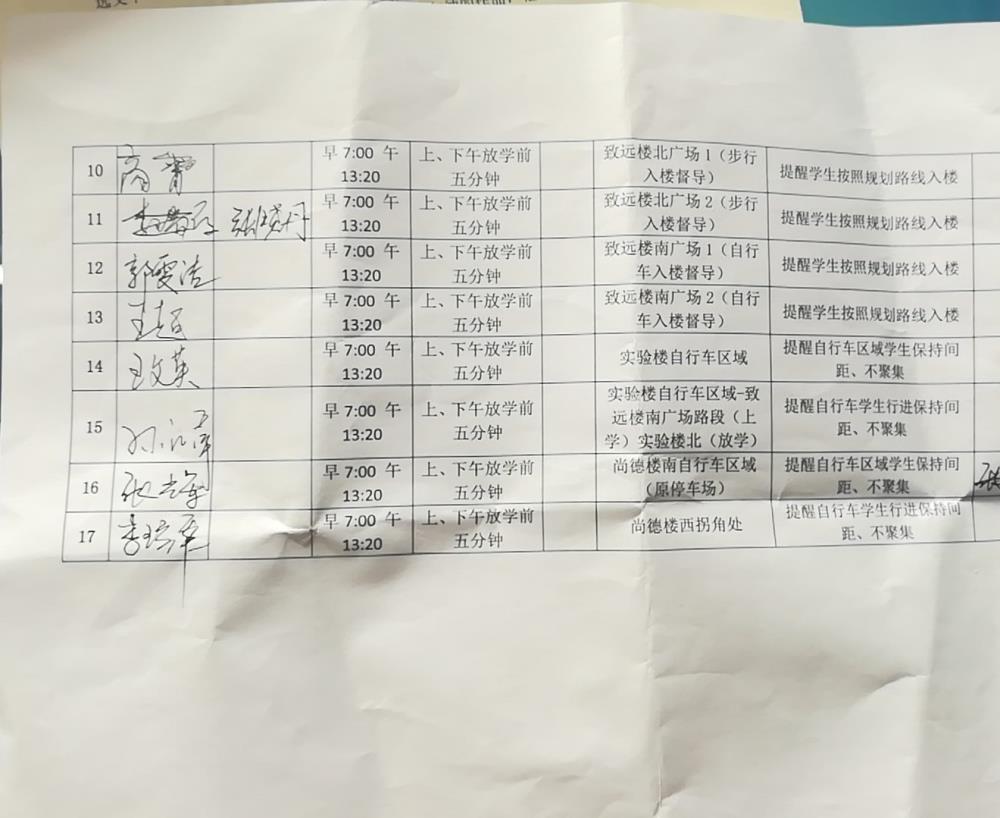 10 早 7:00 午 上、下午放学前 致远楼北广场 1（步行 提醒学生按照规划路线入楼
13:20 五分钟 入楼督导）
11 张瑛丹 早 7:00 午 上、下午放学前 致远楼北广场 2（步行 提醒学生按照规划路线入楼
13:20 五分钟 入楼督导）
12 郭雯洁 早 7:00 午 上、下午放学前 致远楼南广场 1（自行 提醒学生按照规划路线入楼
13:20 五分钟 车入楼督导）
13 王超 早 7:00 午 上、下午放学前 致远楼南广场 2（自行 提醒学生按照规划路线入楼
13:20 五分钟 车入楼督导）
14 王玫英 早 7:00 午 上、下午放学前 实验楼自行车区域 提醒自行车区域学生保持间
13:20 五分钟 距、不聚集
15 早 7:00 午 上、下午放学前 实验楼自行车区域-致 提醒自行车学生行进保持间
13:20 五分钟 远楼南广场路段（上 距、不聚集
学）实验楼北（放学）
16 早 7:00 午 上、下午放学前 尚德楼南自行车区域 提醒自行车区域学生保持间
13:20 五分钟 （原停车场） 距、不聚集
17 早 7:00 午 上、下午放学前 尚德楼西拐角处 提醒自行车学生行进保持间
13:20 五分钟 距、不聚集